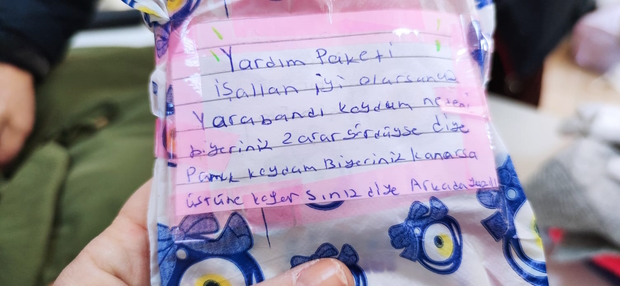 Yardım Paketi
işallan iyi olarsunuz
Yarabandı koydum
biyeriniz zarar gördüyse diye
Pamuk koydum Biyeriniz kanarsa
üstüne koyarsınız diye